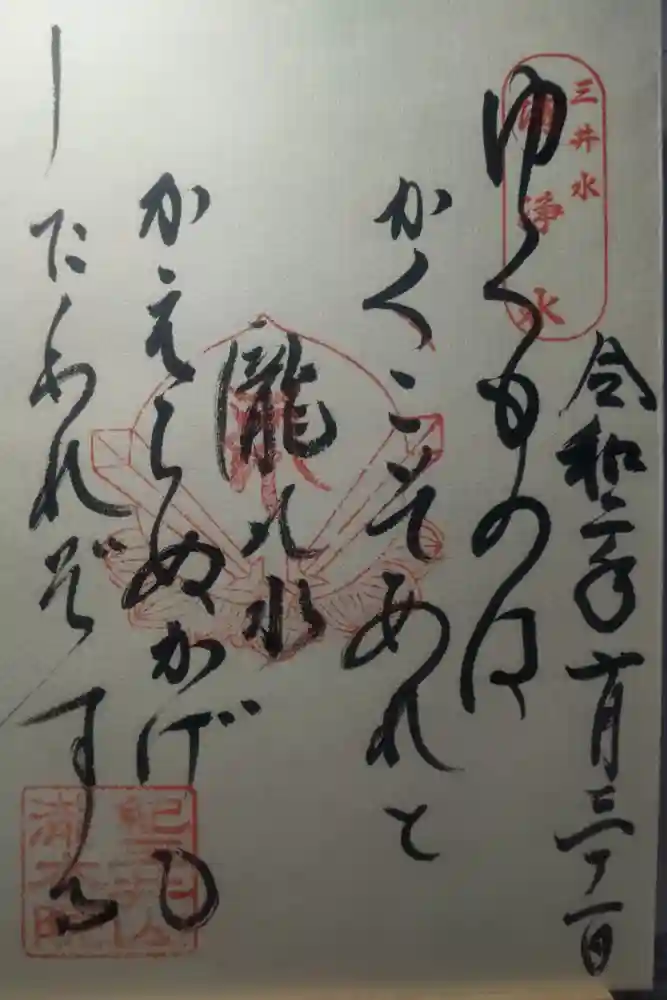 三井水
清浄水
令和二年十月三十一日
ゆくものは
かくこそあれと
瀧乃水
かえらぬかげも
したわれぞする
紀三井山